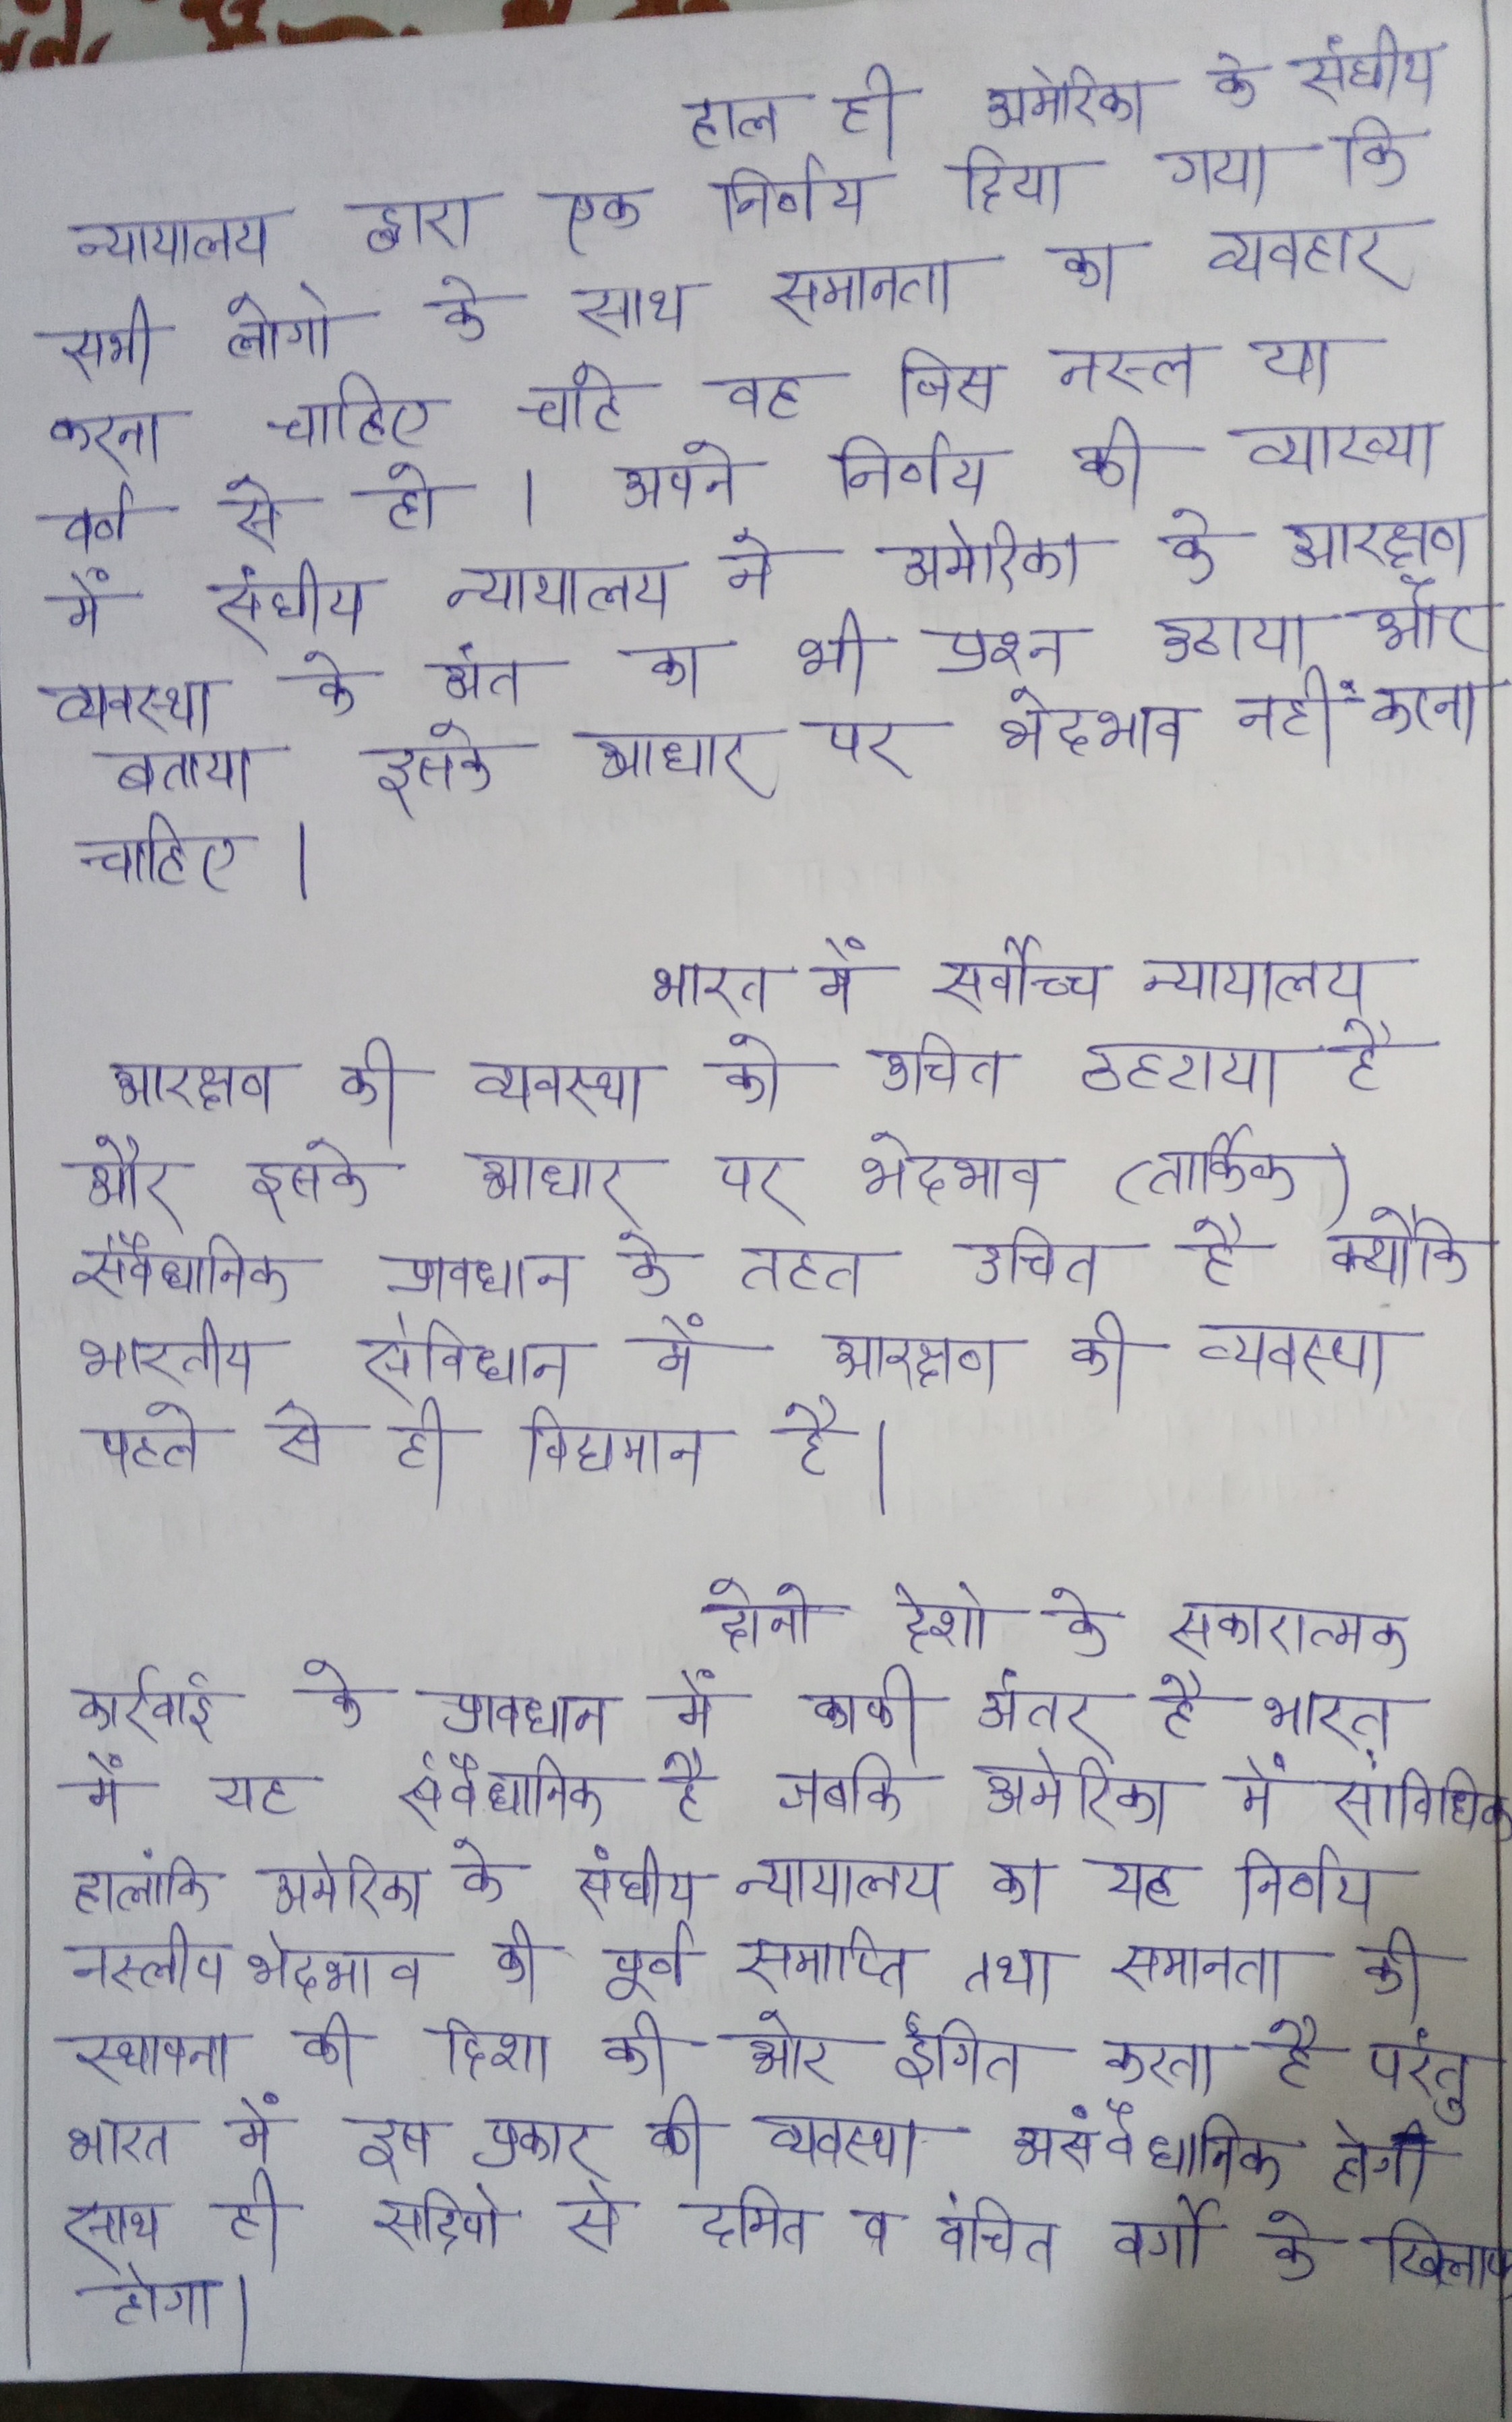 हाल ही अमेरिका के संघीय
न्यायालय द्वारा एक निर्णय दिया गया कि
सभी लोगो के साथ समानता का व्यवहार
करना चाहिए चाहे वह जिस नस्ल या
वर्ण से हो । अपने निर्णय की व्याख्या
में संघीय न्यायालय ने अमेरिका के आरक्षण
व्यवस्था के अंत का भी प्रश्न उठाया और
बताया इसके आधार पर भेदभाव नहीं करना
चाहिए |
भारत में सर्वोच्च न्यायालय
आरक्षण की व्यवस्था को उचित ठहराया है
और इसके आधार पर भेदभाव (तार्किक)
संवैधानिक प्रावधान के तहत उचित है क्योंकि
भारतीय संविधान में आरक्षण की व्यवस्था
पहले से ही विद्यमान है|
दोनो देशो के सकारात्मक
कार्रवाई के प्रावधान में काफी अंतर है भारत
में यह संवैधानिक है जबकि अमेरिका में सांविधिक
हालांकि अमेरिका के संघीय न्यायालय का यह निर्णय
नस्लीय भेदभाव की पूर्ण समाप्ति तथा समानता की
स्थापना की दिशा की ओर इंगित करता है परंतु
भारत में इस प्रकार की व्यवस्था असंवैधानिक होगी
साथ ही सदियो से दमित व वंचित वर्गो के खिलाफ
होगा|